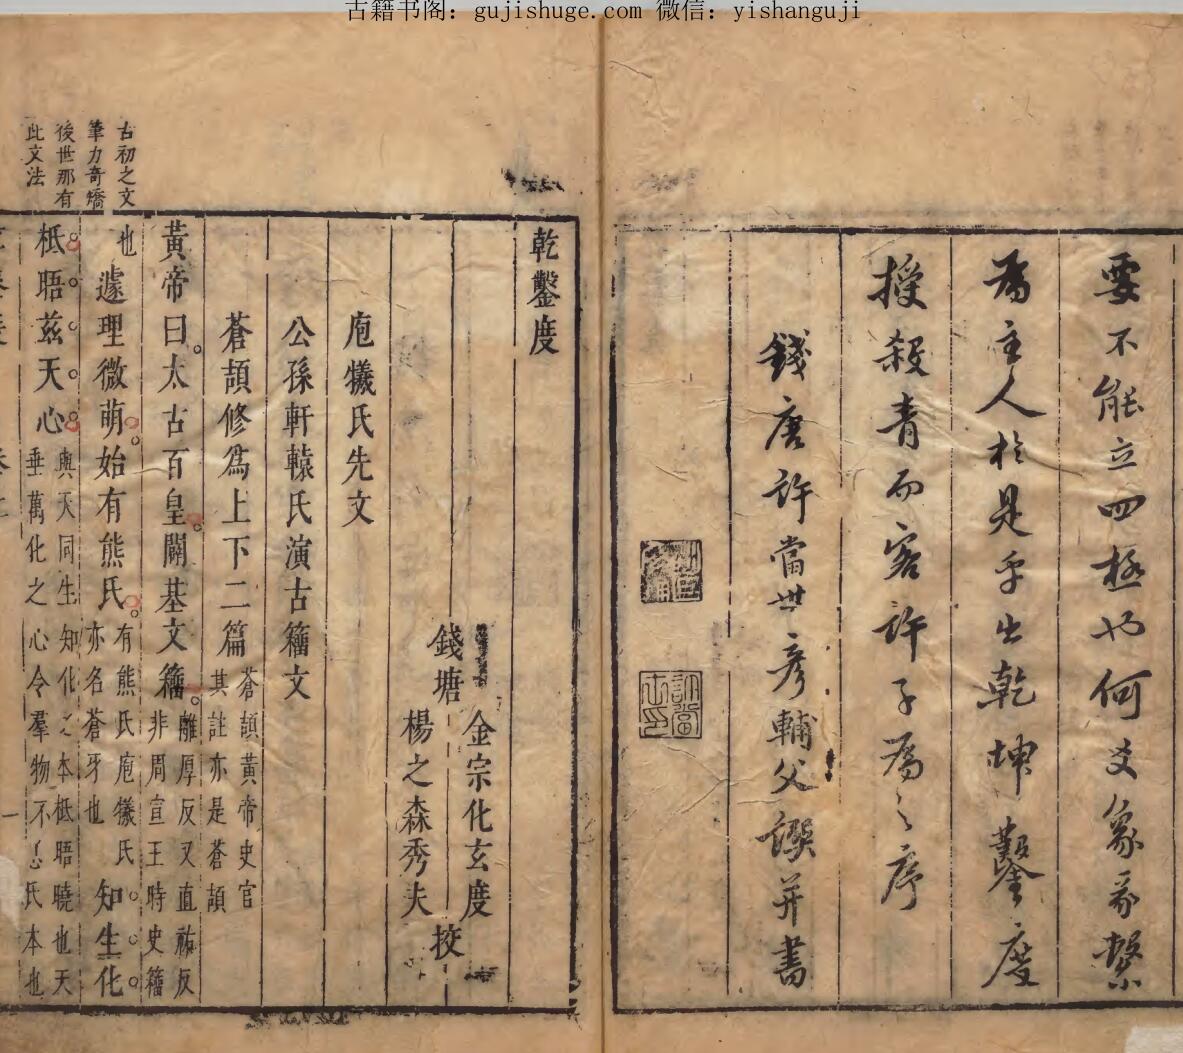 古籍书阁：gujishuge.com 微信：yishanguji
要不能立四極也何爻象彖繫
為主人於是乎出乾坤鑿度
授殺青而客許子為之序
錢唐許當世彥輔父譔并書
乾鑿度
錢塘
金宗化玄度
楊之森秀夫
挍
庖犧氏先文
公孫軒轅氏演古籀文
蒼頡修為上下二篇
蒼頡黃帝史官
其註亦是蒼頡
黃帝曰太古百皇闢基文籀
離厚反又直祐反
非周宣王時史籀
也
遽理微萌始有熊氏
有熊氏庖犧氏
亦名蒼牙也
知生化
柢晤茲天心
與天同生知化之本柢晤曉也天
垂萬化之心令羣物不忘氏本也
古初之文
筆力奇矯
後世那有
此文法
一